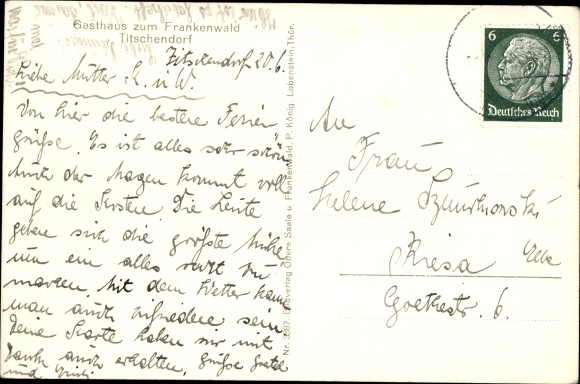 Gasthaus zum Frankenwald
Titschendorf
Titschendorf 20.6.
Liebe Mutter L. u W.
Von hier die besten Ferien
grüße. Es ist alles sehr schön
Auch der Magen kommt voll
auf die Kosten. Die Leute
geben sich die größte Mühe
um ein alles recht zu
machen. Mit dem Wetter kann
man auch zufrieden sein
Deine Karte haben wir mit
Dank auch erhalten. Grüße Gretel
und
Nr. 3287. Bildverlag Obere Saale u. Frankenwald, P. König, Lobenstein-Thür.
6 6
Deutsches Reich
An
Frau
Helene
Riesa Elbe
Goethestr. 6.